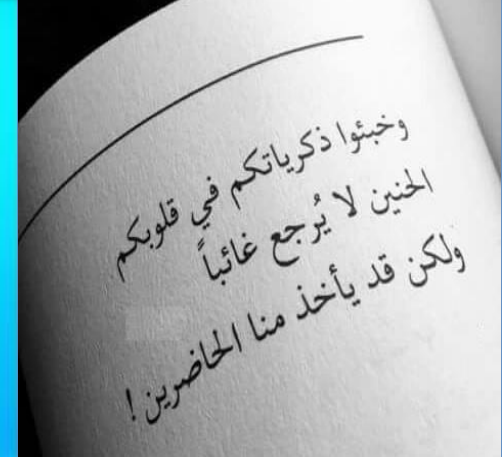 وخبئوا ذكرياتكم في قلوبكم
الحنين لا يُرجع غائباً
ولكن قد يأخذ منا الحاضرين !